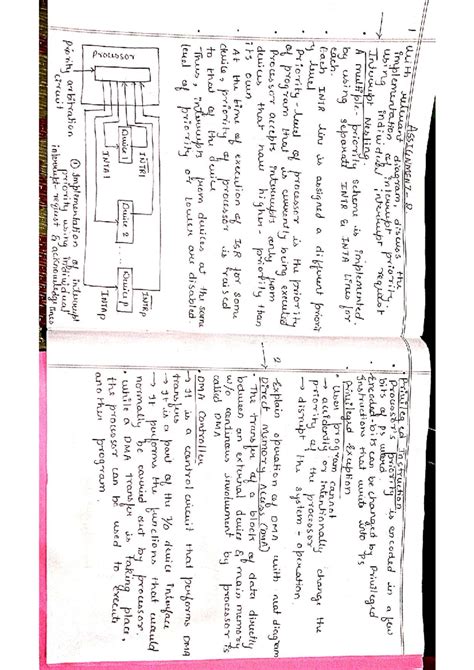 ASSIGNMENT-2
1 With relevant diagram, discuss the
implementation of interrupt priority,
using individual interrupt request
Interrupt Nesting.
• A multiple-priority scheme is implemented
by using separate INTR & INTA lines for
each.
• Each INTR line is assigned a different priori
y level
• Priority-level of processor is the priority
of program that is currently being executed
• Processor accepts interrupts only from
devices that have higher-priority than
its own.
• At the time of execution of ISR for some
device, priority of processor is raised
to that of the device
• Thus, interrupts from devices at the same
level of priority or lower are disabled.
Processor
INTR1
INTRp
Device 1
Device 2
Device p
INTA1
INTAp
Priority arbitration
circuit
① Implementation of interrupt
priority using individual
interrupt-request & acknowledge lines
Privileged Instruction
• Processor's priority is encoded in a few
bits of PS word.
• Encoded-bits can be changed by Privileged
Instructions that write into PS
Privileged Exception
• User program cannot
→ accidently or intentionally change the
priority of the processor
→ disrupt the system-operation.
2 Explain operation of DMA with neat diagram
Direct Memory Access (DMA)
• The transfer of a block of data directly
between an external device & main memory
w/o continuous involvement by processor is
called DMA
• DMA Controller
→ It is a control circuit that performs DMA
transfers
→ It is a part of the I/O device interface
→ It performs the functions that would
normally be carried out by processor.
• While a DMA transfer is taking place,
the processor can be used to execute
another program.